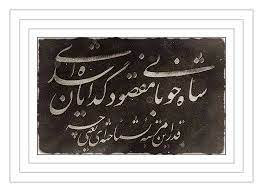 شاه خوبانی و مقصود گدایان شده‌ای
قدر این مرتبه نشناخته‌ای یعنی چه